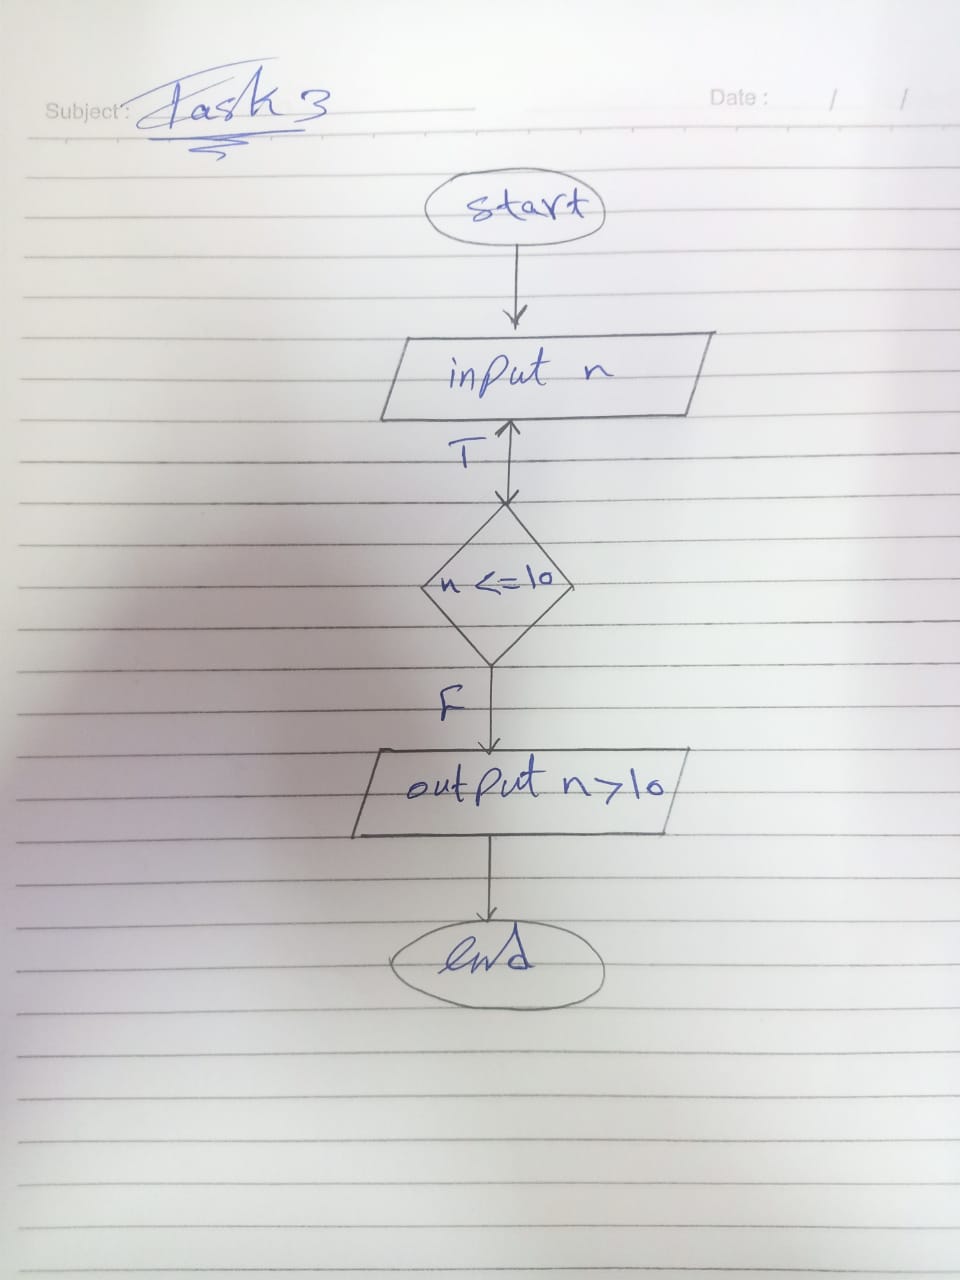 Subject: Task 3
Date: / /
start
input n
T
n <=10
F
output n>10
end